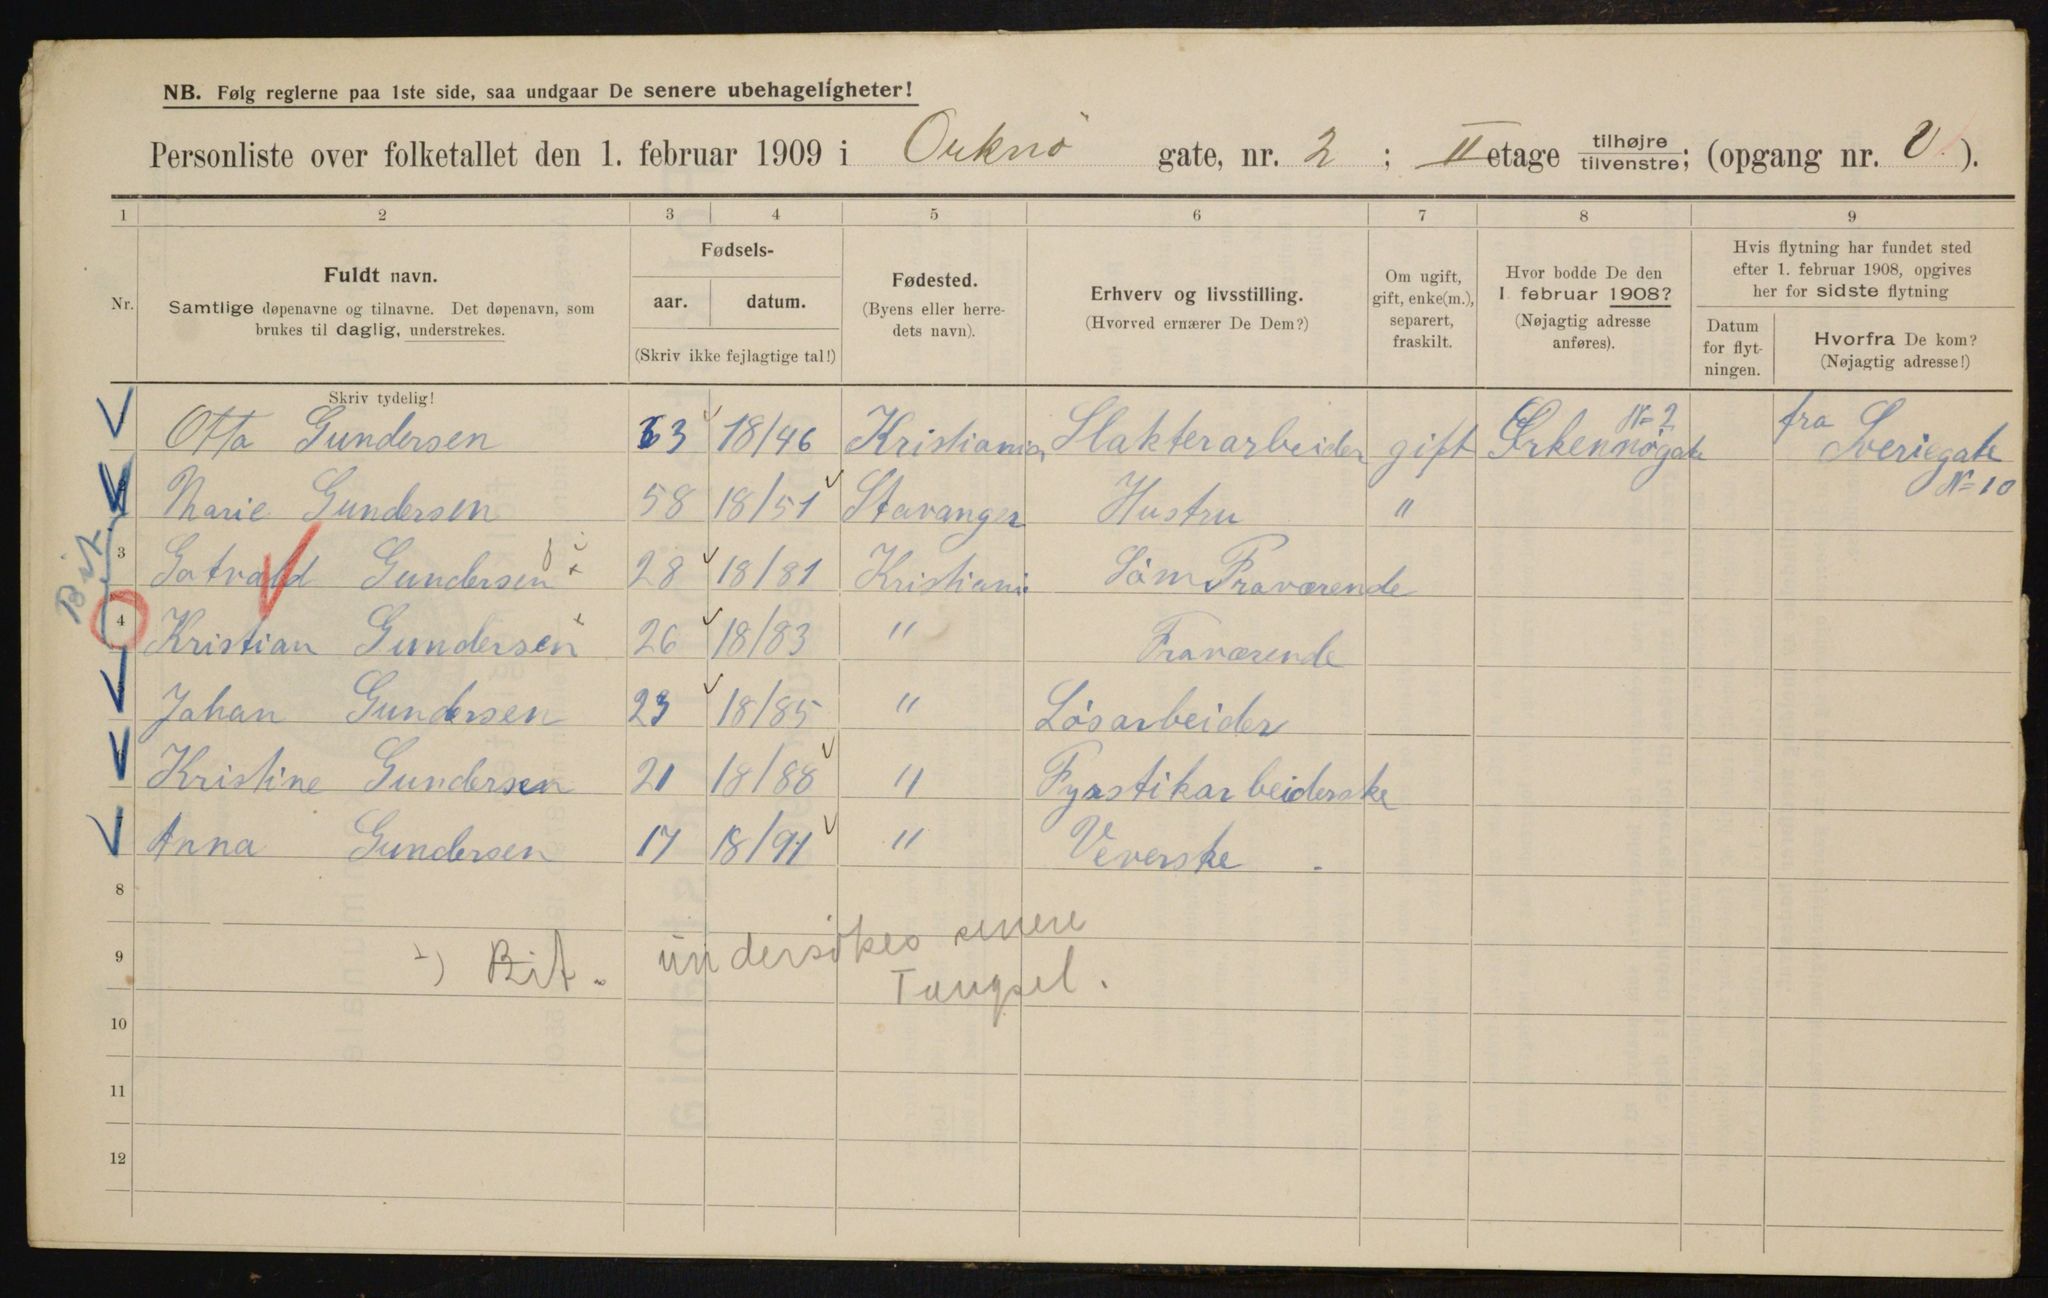 NB. Følg reglerne paa 1ste side, saa undgaar De senere ubehageligheter!
Personliste over folketallet den 1. februar 1909 i Orknø gate, nr. 2 ; II etage tilhøjre tilvenstre; (opgang nr. ).
1 2 3 4 5 6 7 8 9
Nr.
Fuldt navn.
Samtlige døpenavne og tilnavne. Det døpenavn, som
brukes til daglig, understrekes.
Fødsels-
aar. datum.
(Skriv ikke fejlagtige tal!)
Fødested.
(Byens eller herre-
dets navn).
Erhverv og livsstilling.
(Hvorved ernærer De Dem?)
Om ugift,
gift, enke(m.),
separert,
fraskilt.
Hvor bodde De den
1. februar 1908?
(Nøjagtig adresse
anføres).
Hvis flytning har fundet sted
efter 1. februar 1908, opgives
her for sidste flytning
Datum
for flyt-
ningen.
Hvorfra De kom?
(Nøjagtig adresse!)
Skriv tydelig!
Otto Gundersen 63 18/46 Kristiania Slakterarbeider gift Ørkennøgate N=2 fra Sveriegate
N=10
Marie Gundersen 58 18/51 Stavanger Hustru "
3 Gundersen 28 18/81 Kristiania Søm Fraværende
4 Kristian Gundersen 26 18/83 " Fraværende
Johan Gundersen 23 18/85 " Løsarbeider
Kristine Gundersen 21 18/88 " Fyrstikarbeiderske
Anna Gundersen 17 18/91 " Veverske
8
9 undersökes senere
10
11
12